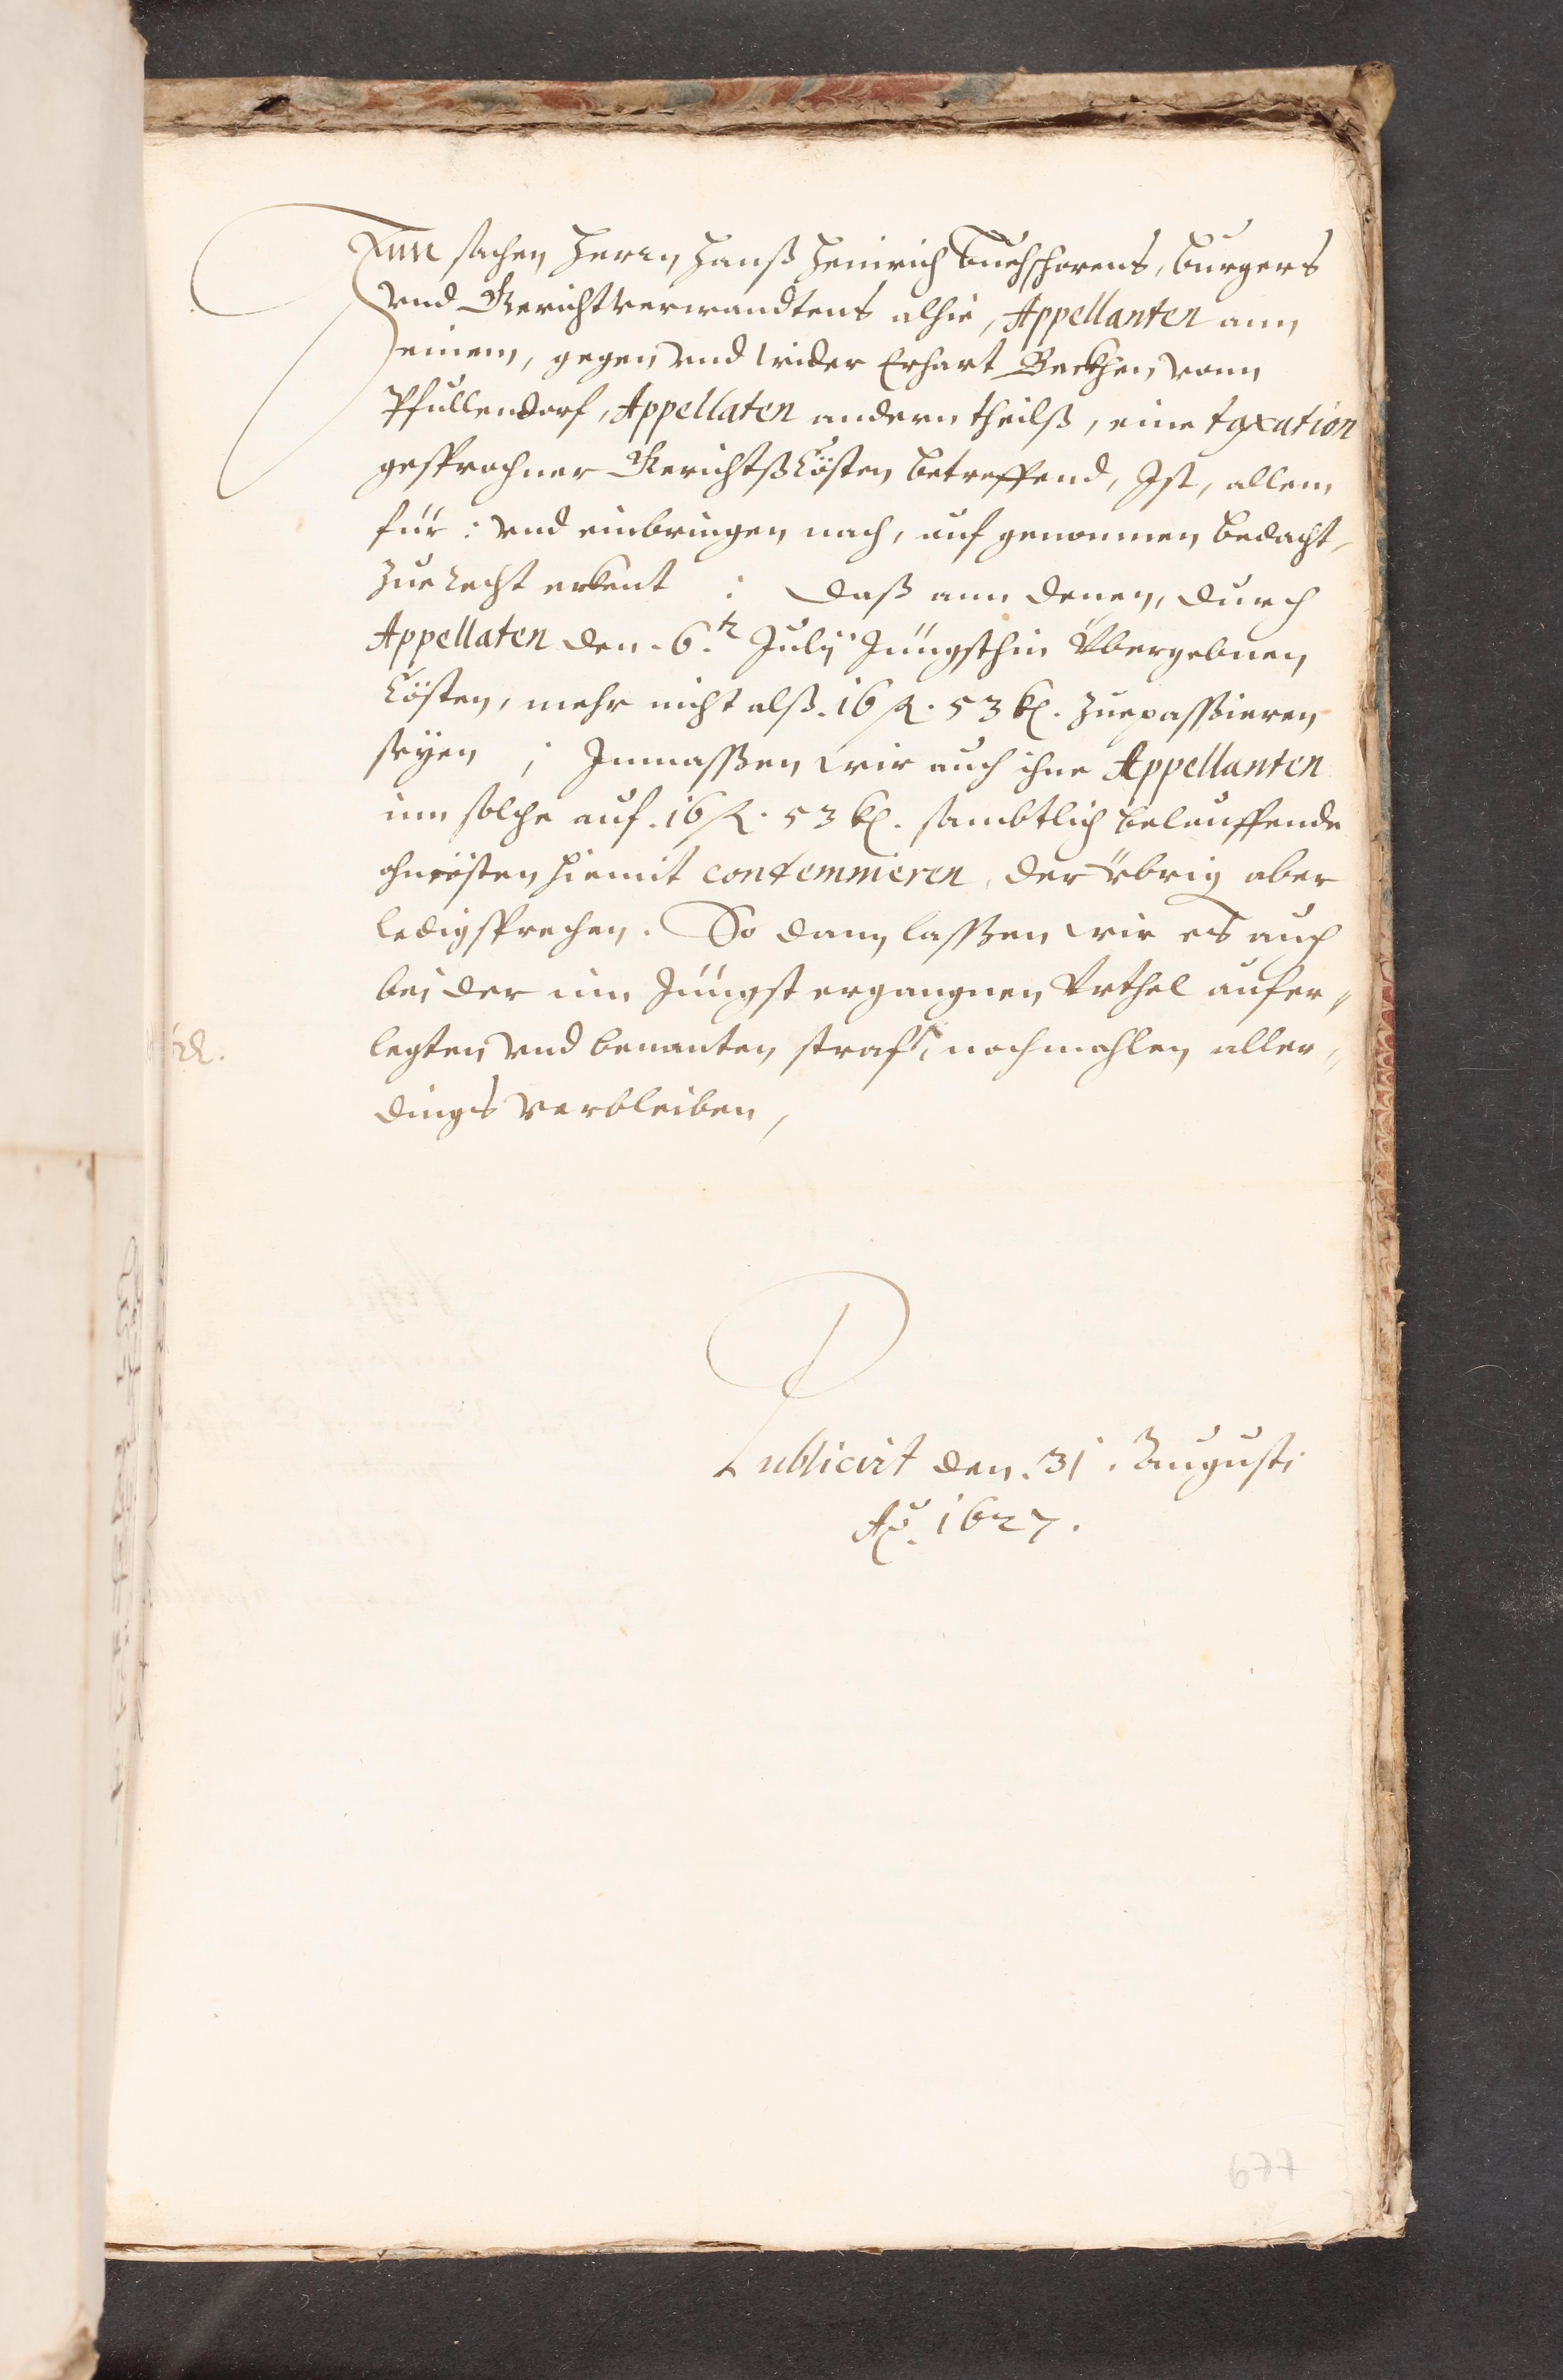 Inn sachen Herrn Hanß Heinrich Buchschorens, burgers
vnd Gerichtverwandtens alhie, Appellanten ann
einem, gegen vnd wider Erhart Beckhen vonn
Pfullendorf, Appellaten andern theilß, eine taxation
gesprochner Gerichtßcösten betreffend, Ist, allem
für: vnd einbringen nach, auf genommen bedacht,
zue Recht erkent : Daß ann denen, durch
Appellaten den .6. July Jüngsthin Übergebnen
Cösten, mehr nicht alß .16 fl. 53 kr. zuepassieren
seyen ; Inmassen wir auch ihne Appellanten
inn solche auf .16 fl. 53 kr. sambtlich belauffende
hiemit contemnieren, der übrig aber
ledigsprechen. So dann lassen wir es auch
bei der inn Jüngst ergangnen Vrthel aufer„
legten vnd benanten straff, nochmahlen aller„
dings verbleiben,
Publicirt den .31. Augusti
Ao. 1627.
677